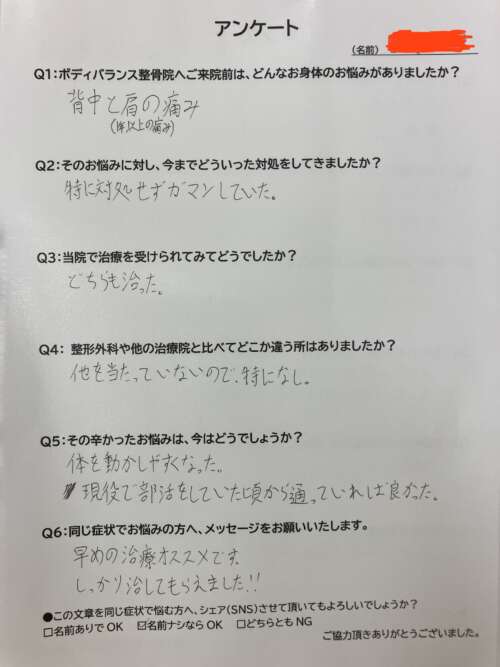 アンケート
(名前)
Q1:ボディバランス整骨院へご来院前は、どんなお身体のお悩みがありましたか?
背中と肩の痛み
(1年以上の痛み)
Q2:そのお悩みに対し、今までどういった対処をしてきましたか?
特に対処せずガマンしていた。
Q3:当院で治療を受けられてみてどうでしたか?
どちらも治った。
Q4: 整形外科や他の治療院と比べてどこか違う所はありましたか?
他を当たっていないので、特になし。
Q5:その辛かったお悩みは、今はどうでしょうか?
体を動かしやすくなった。
現役で部活をしていた頃から通っていれば良かった。
Q6:同じ症状でお悩みの方へ、メッセージをお願いいたします。
早めの治療オススメです。
しっかり治してもらえました!!
●この文章を同じ症状で悩む方へ、シェア(SNS)させて頂いてもよろしいでしょうか?
□名前ありでOK ☑名前ナシならOK □どちらともNG
ご協力頂きありがとうございました。